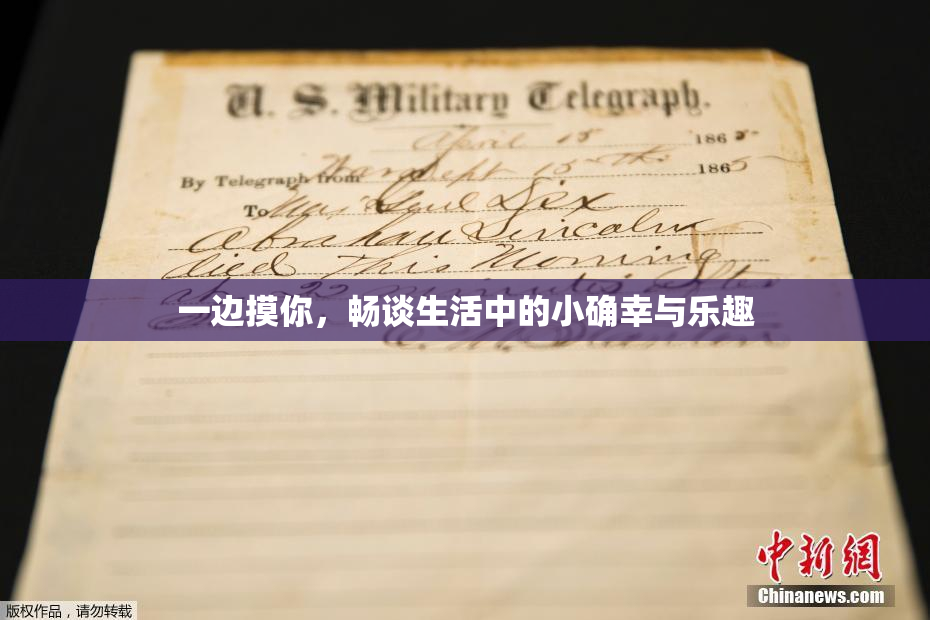 U. S. Military Telegraph.
April 15 1865
By Telegraph from War Dept 15th 1865
To Maj Genl Dix
Abraham Lincoln
died This Morning
at 22 minutes after
一边摸你，畅谈生活中的小确幸与乐趣
中新網
Chinanews.com
版权作品，请勿转载